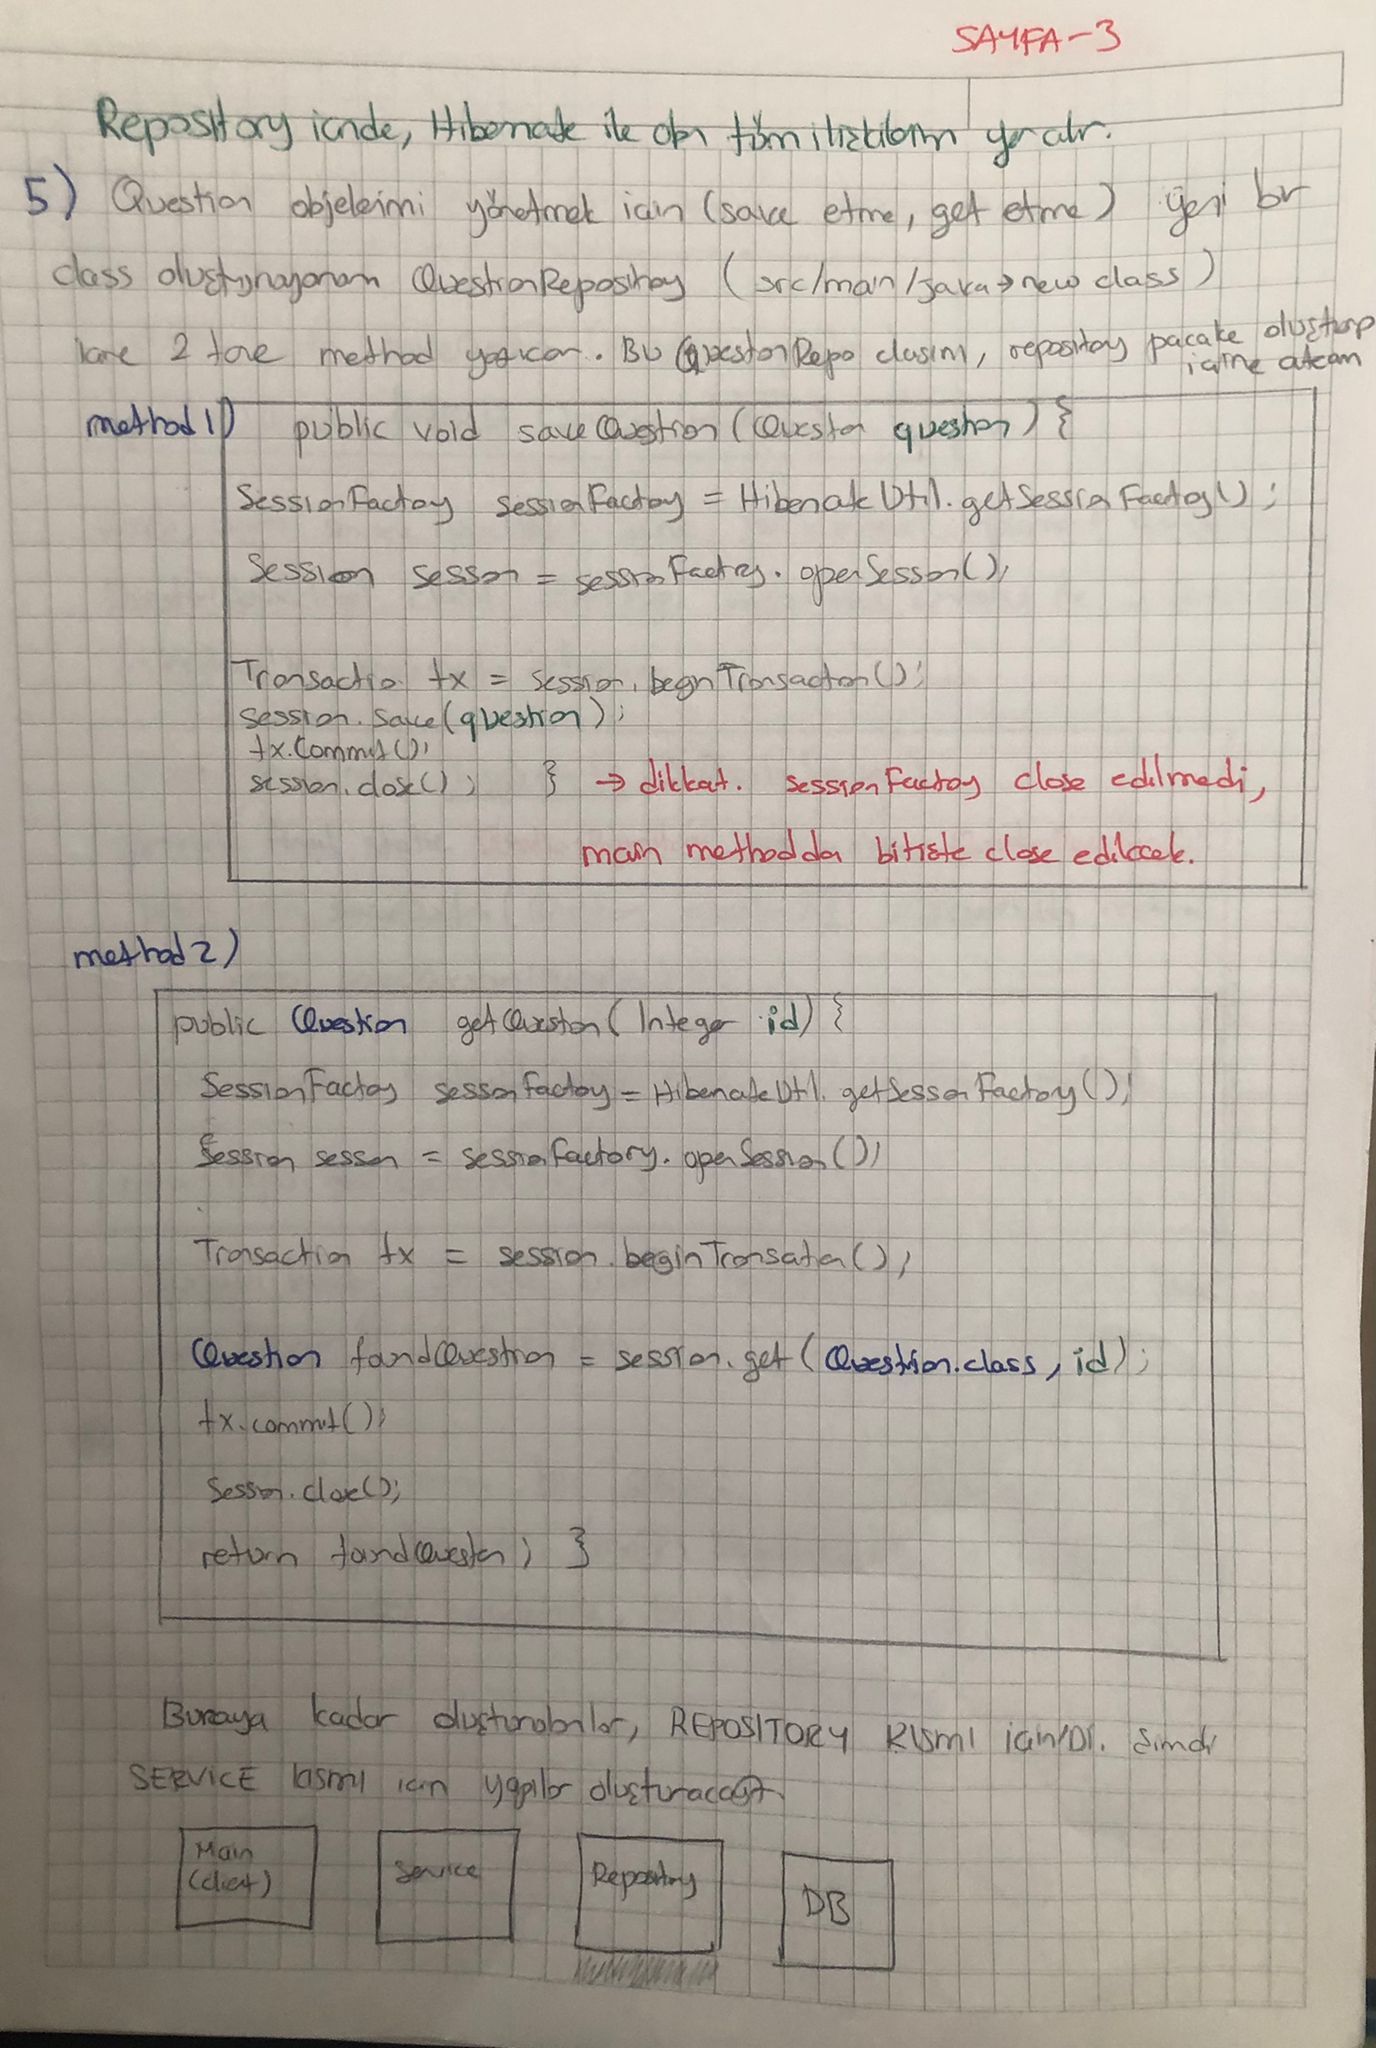 SAYFA-3
Repository icinde, Hibernate ile olan tüm iliskilerim yer alır.
5) Question objelerimi yönetmek icin (save etme, get etme) yeni bir
class oluşturuyorum QuestionRepository (src/main/java→new class)
2 tane method yazıcam. Bu QuestionRepo classını, repository pacake oluşturup
icine atıcam
method 1) public void saveQuestion (Question question) {
SessionFactory sessionFactory = HibernateUtil.getSessionFactory();
Session session = sessionFactory.openSession();
Transaction tx = session.beginTransaction();
session.save(question);
tx.commit();
session.close(); } → dikkat. sessionFactory close edilmedi,
main methodda bitiste close edilecek.
method 2)
public Question getQuestion(Integer id) {
SessionFactory sessionFactory = HibernateUtil.getSessionFactory();
Session session = sessionFactory.openSession();
Transaction tx = session.beginTransaction();
Question foundQuestion = session.get(Question.class, id);
tx.commit();
session.close();
return foundQuestion; }
Buraya kadar oluşturulanlar, REPOSITORY KISMI için'Dİ. Simdi
SERVICE kısmı icin yapılar oluşturacağız.
Main
(client)
Service
Repository
DB